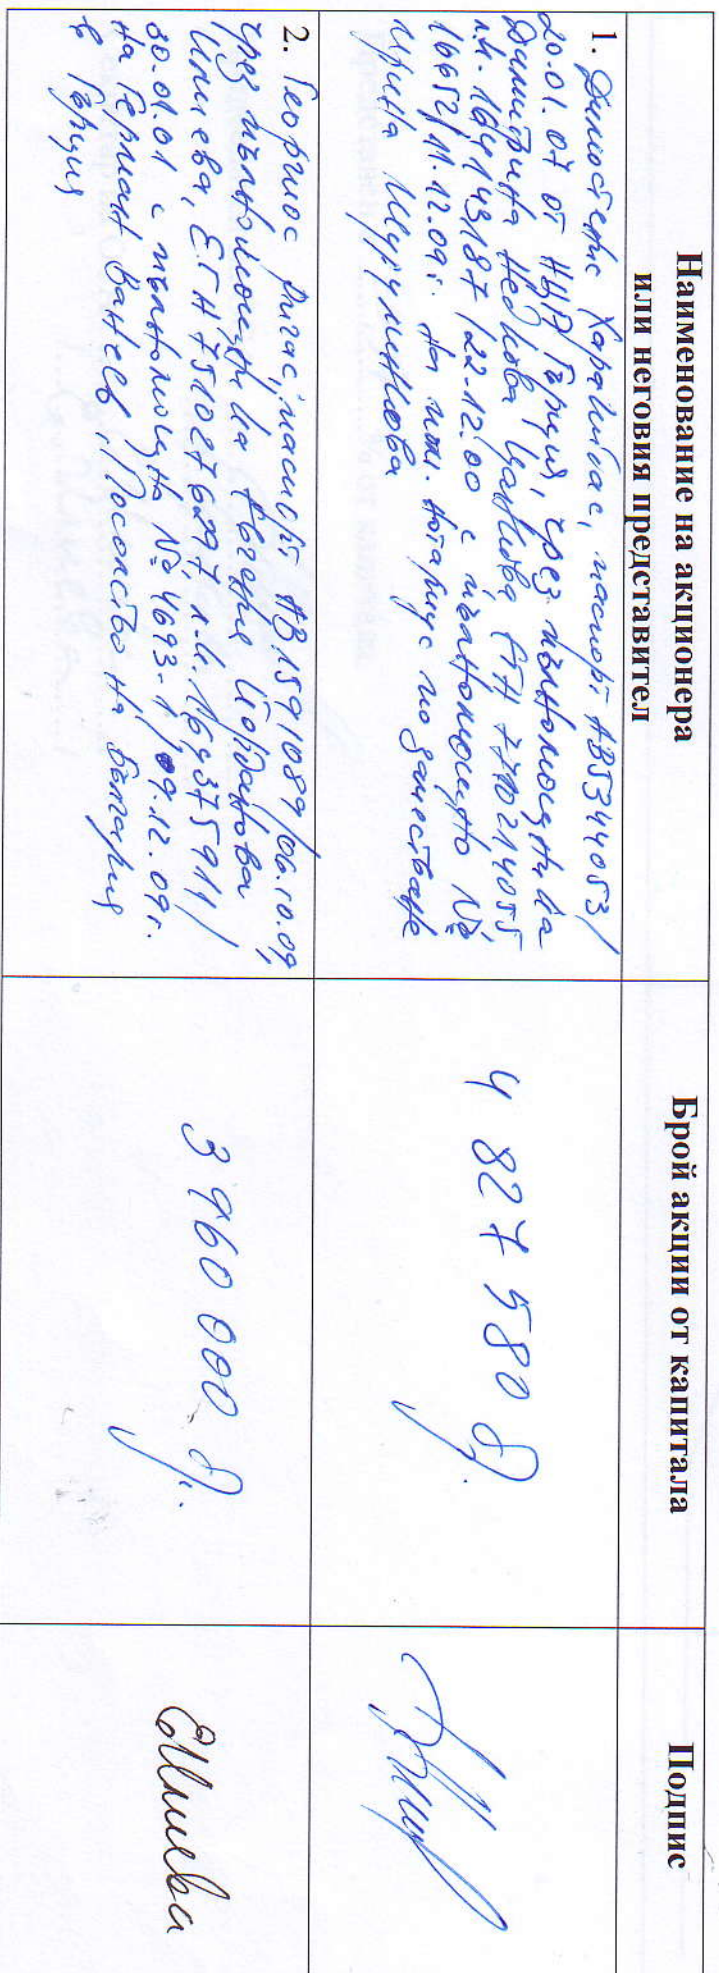 Наименование на акционера
или неговия представител
Брой акции от капитала
Подпис
1. Димостенис Харалабиас, паспорт АВ5344053/
20.01.07 от НЦД Гърция, чрез пълномощничка
Димитрина Недкова Цанкова, ЕГН 7710214055
л.к. 164143187/22.12.00 с пълномощно №
16652/11.12.09г. на пом. нотариус по заместване
Ирина
4 827 580 бр.
2. Георгиос Ригас, паспорт АВ1591089/06.10.09,
чрез пълномощничка Евгения Йорданова
Илиева, ЕГН 7510276297, л.к. 164375911/
30.01.01 с пълномощно № 4693-1/09.12.09г.
на Герман Ванчев, Посолство на България
в Гърция
3 960 000 бр.
ЕИлиева